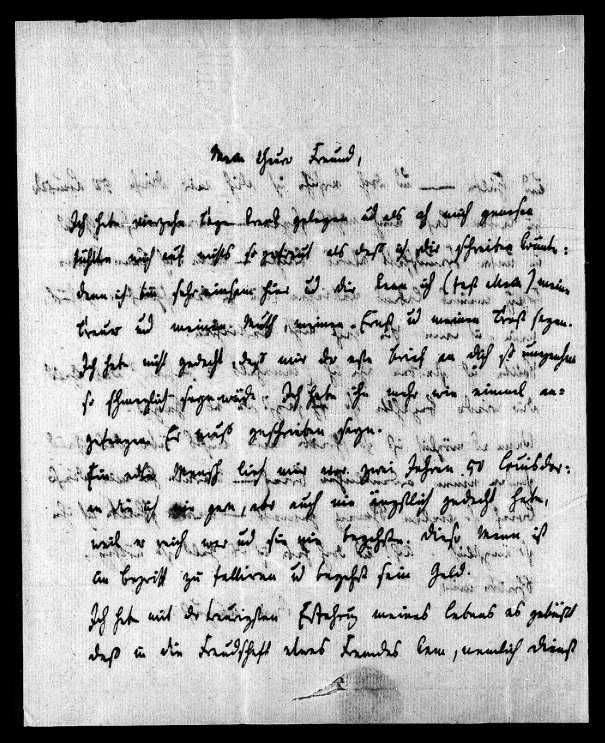 Mein theurer Freund,
Ich habe vierzehn Tage krank gelegen ud als ich mich genesen
fühlte mich auf nichts so gefreut als daß ich dir schreiben konnte:
denn ich bin sehr einsam hier ud dir kann ich (laß mich) meine
Trauer ud meinen Muth, meinen Ernst ud meinen Trost sagen.
Ich habe nicht gedacht, daß mir der erste Brief an dich so ungemein
so schmerzlich seyn würde. Ich habe ihn mehr wie einmal an-
gefangen. Er muß geschrieben seyn.
Ein edler Mensch lieh mir vor zwei Jahren 50 Louisdor:
an die ich nie gern, aber auch nie ängstlich gedacht habe,
weil er reich war ud sie nie begehrte. Dieser Mann ist
im Begriff zu falliren ud begehrt sein Geld.
Ich habe mit der traurigsten Erfahrung meines Lebens es gebüßt
daß in die Freundschaft etwas Fremdes kam, nemlich Dienst